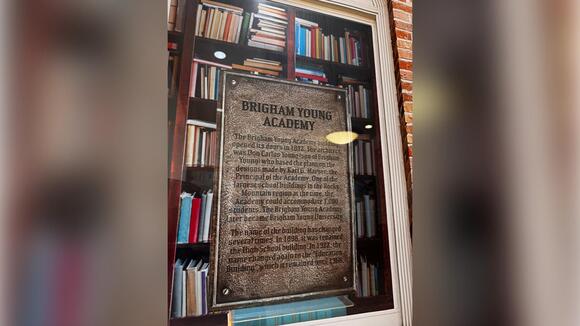 BRIGHAM YOUNG
ACADEMY
The Brigham Young Academy
opened its doors in 1892. The architect
was Don Carlos Young (son of Brigham
Young) who based the plan on the
designs made by Karl G. Maeser, the
Principal of the Academy. One of the
largest school buildings in the Rocky
Mountain region at the time, the
Academy could accommodate 1,000
students. The Brigham Young Academy
later became Brigham Young University.
The name of the building has changed
several times. In 1898, it was renamed
the High School building. In 1922, the
name changed again to the "Education
Building", which it remained until 1968.